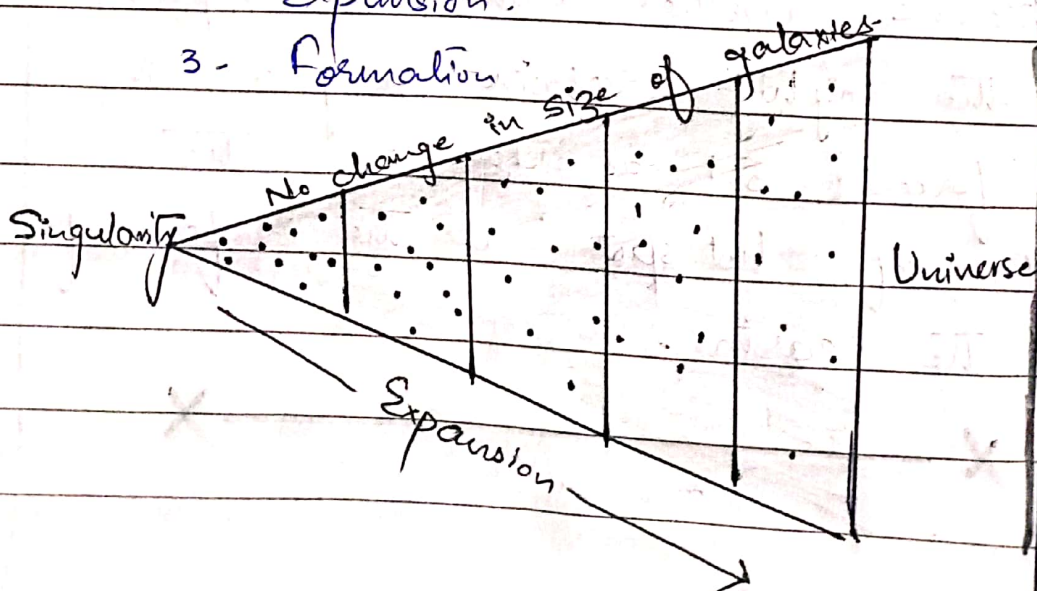 Expansion.
3- Formation
No change in size of galaxies
Singularity
Universe
Expansion